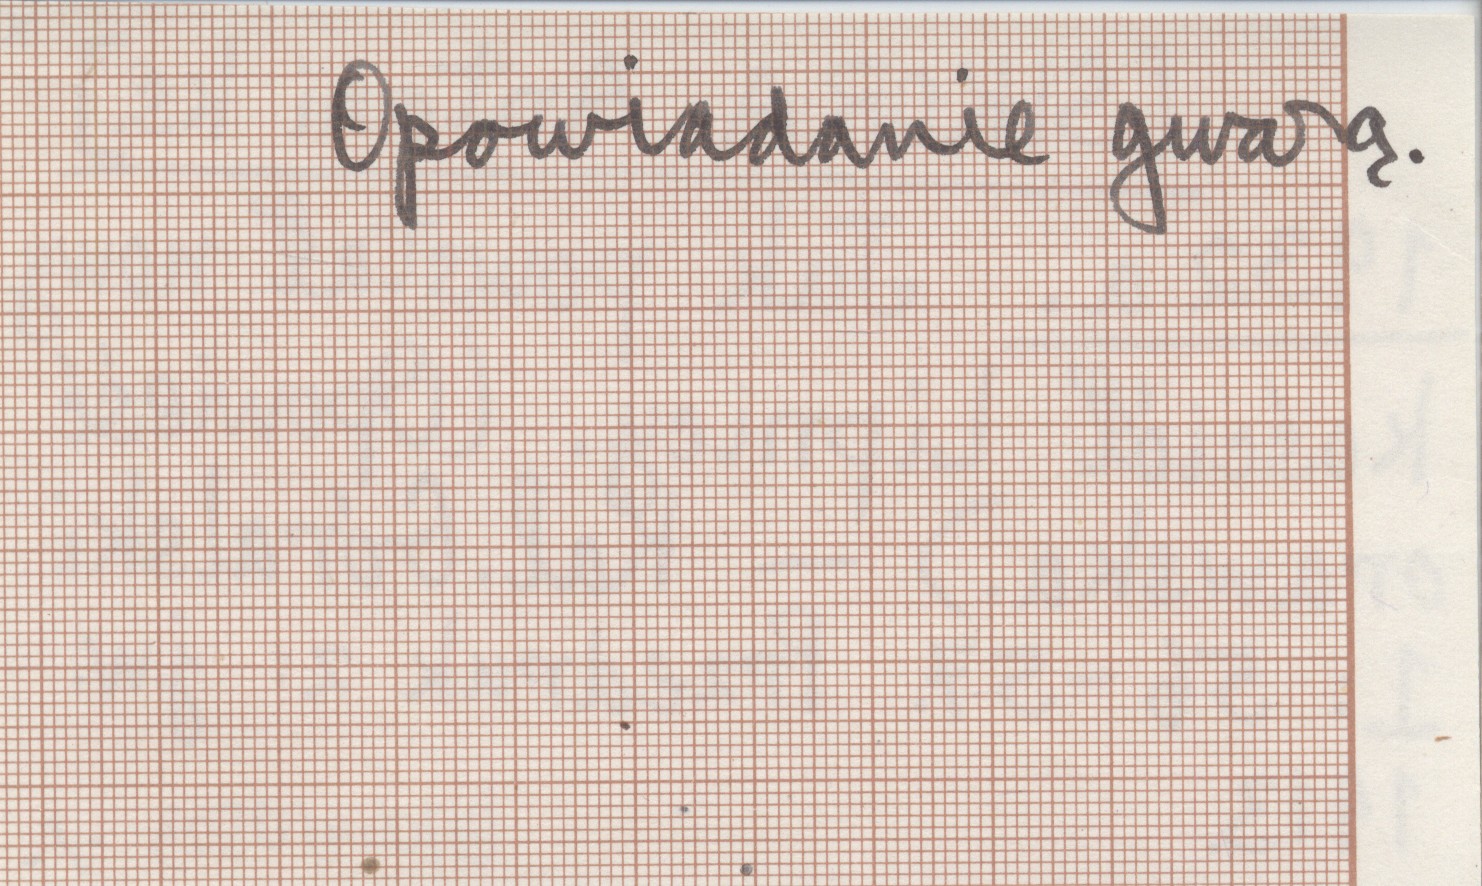 Opowiadanie gwarą.